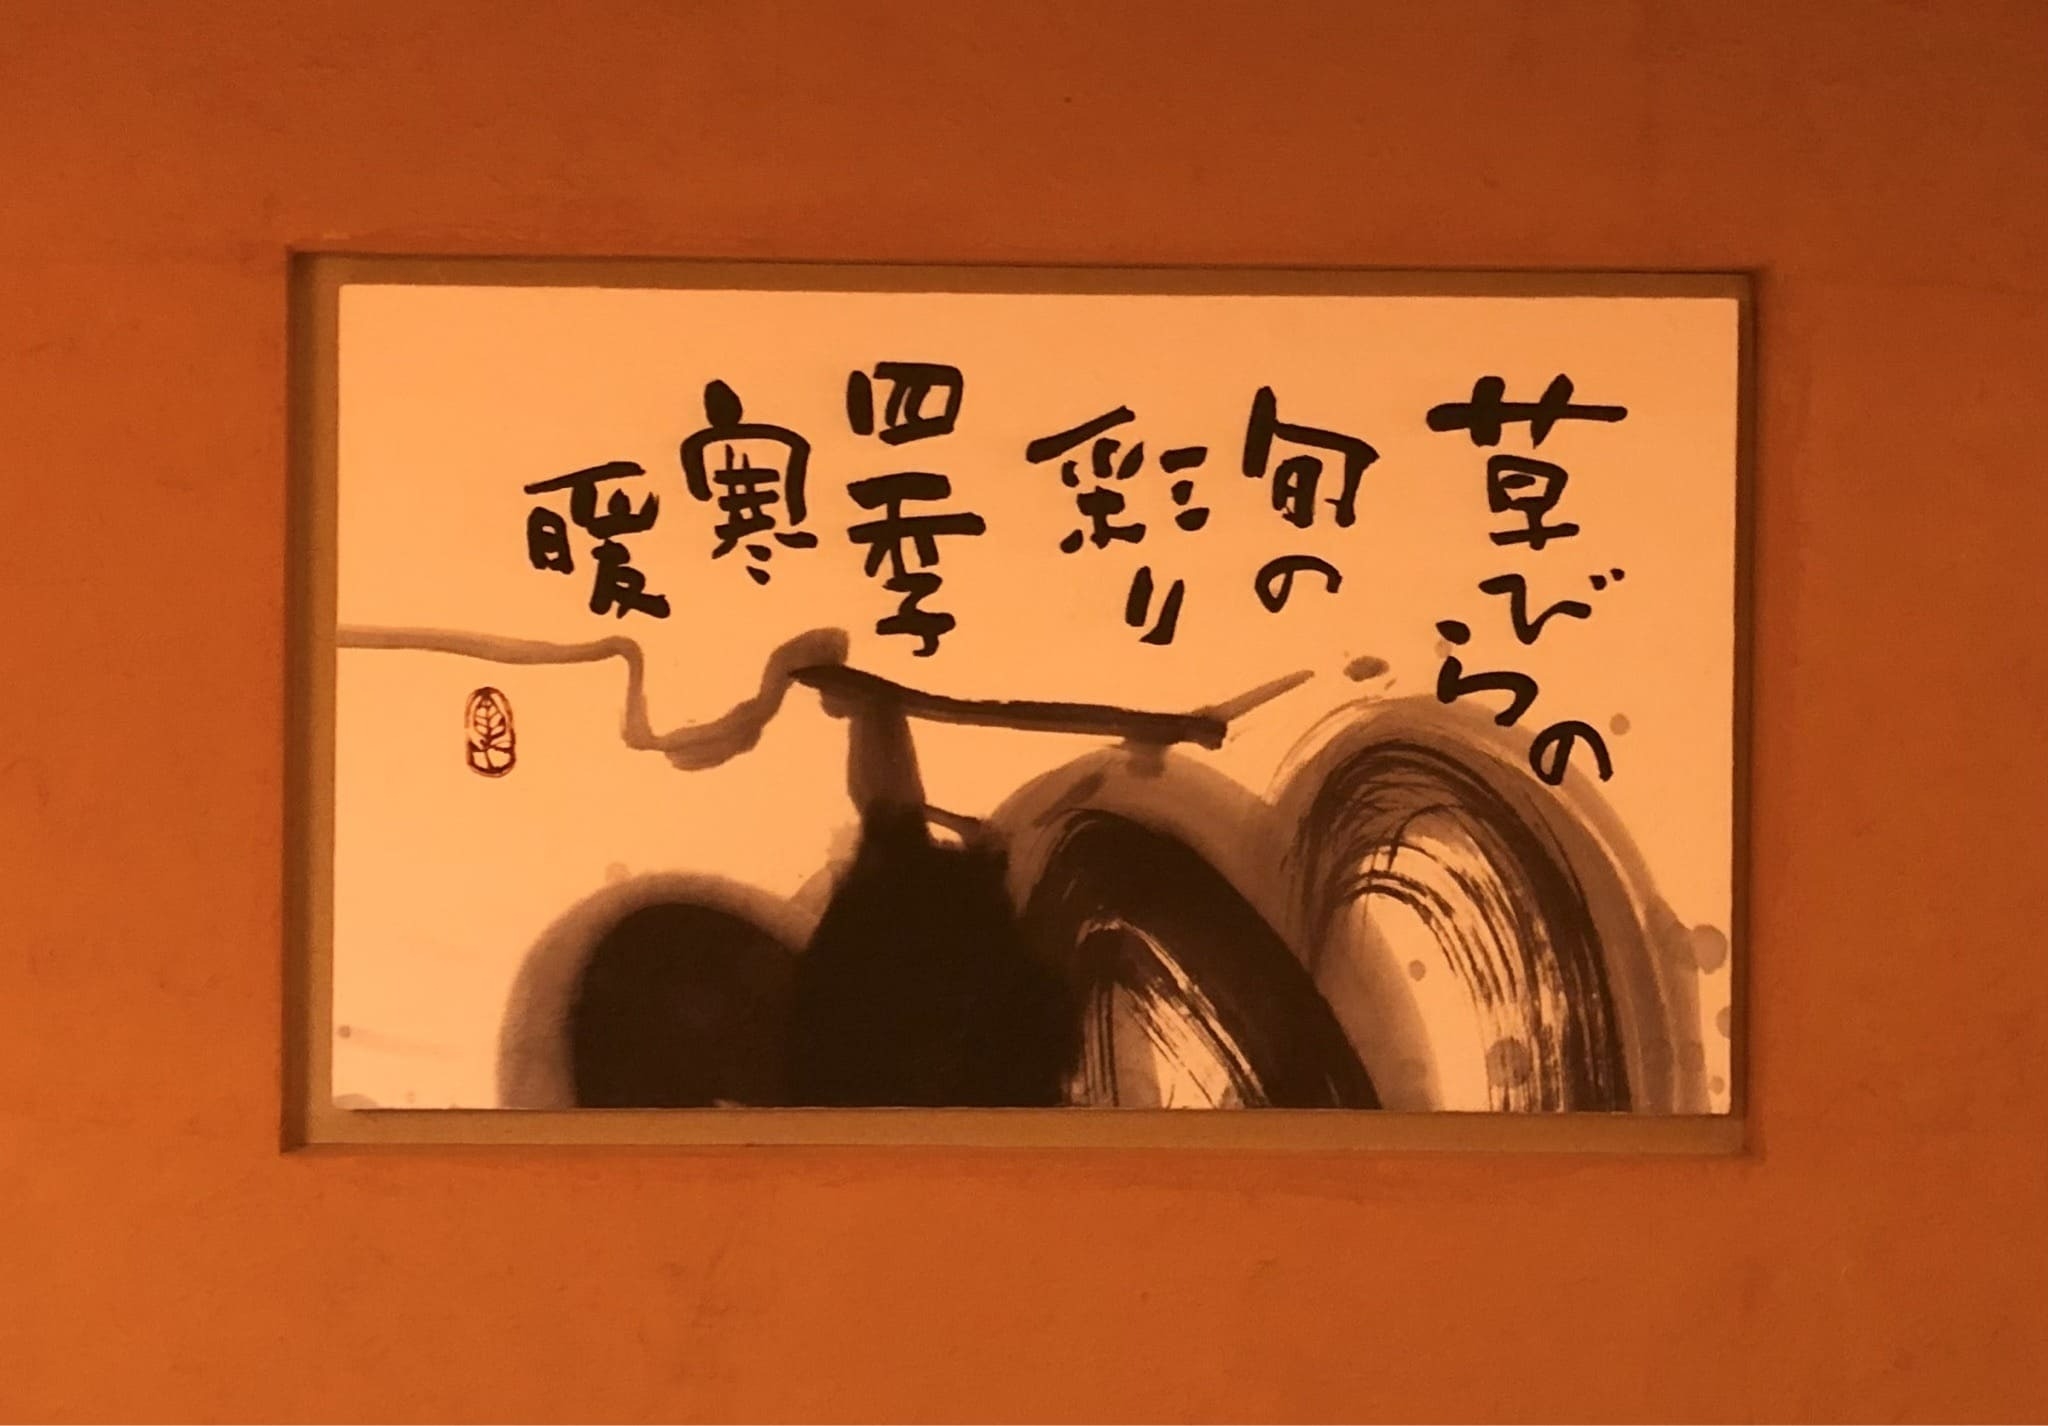 草びらの
旬の
彩り
四季
寒
暖